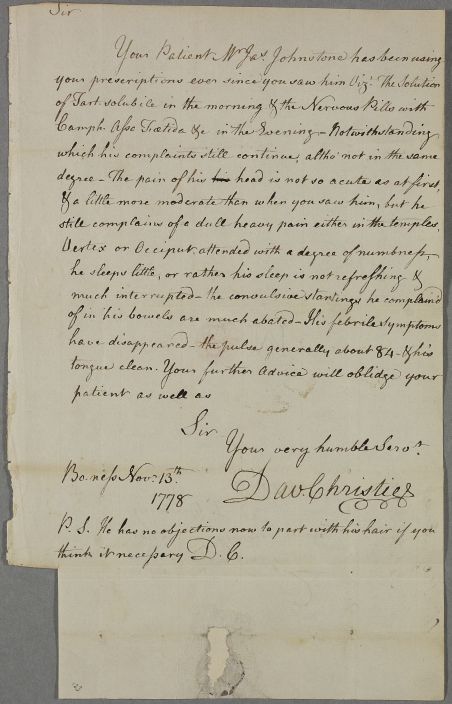 Sir
Your Patient Mr Jas. Johnstone has been using
your prescriptions ever since you saw him Vizt. The Solution
of Tart. solubile in the morning & the Nervous Pills with
Camph. Asso Foatida &c in the Evening – Notwithstanding
which his complaints still continue, altho' not in the same
degree – The pain of his his head is not so acute as at first,
& a little more moderate than when you saw him, but he
still complains of a dull heavy pain either in the temples,
Vertex or Occiput attended with a degree of numbness,
he sleeps little, or rather his sleep is not refreshing &
much interrupted – the convulsive startings he complaind
of in his bowels are much abated – His febrile symptoms
have disappeared – the pulse generally about 84 – & his
tongue clean. Your further Advice will oblidge your
patient as well as
Sir
Your very humble Servt.
Bo-ness Novr. 13th.
1778
Dav Christie
P.S. He has no objections now to part with his hair if you
think it necessary D.C.